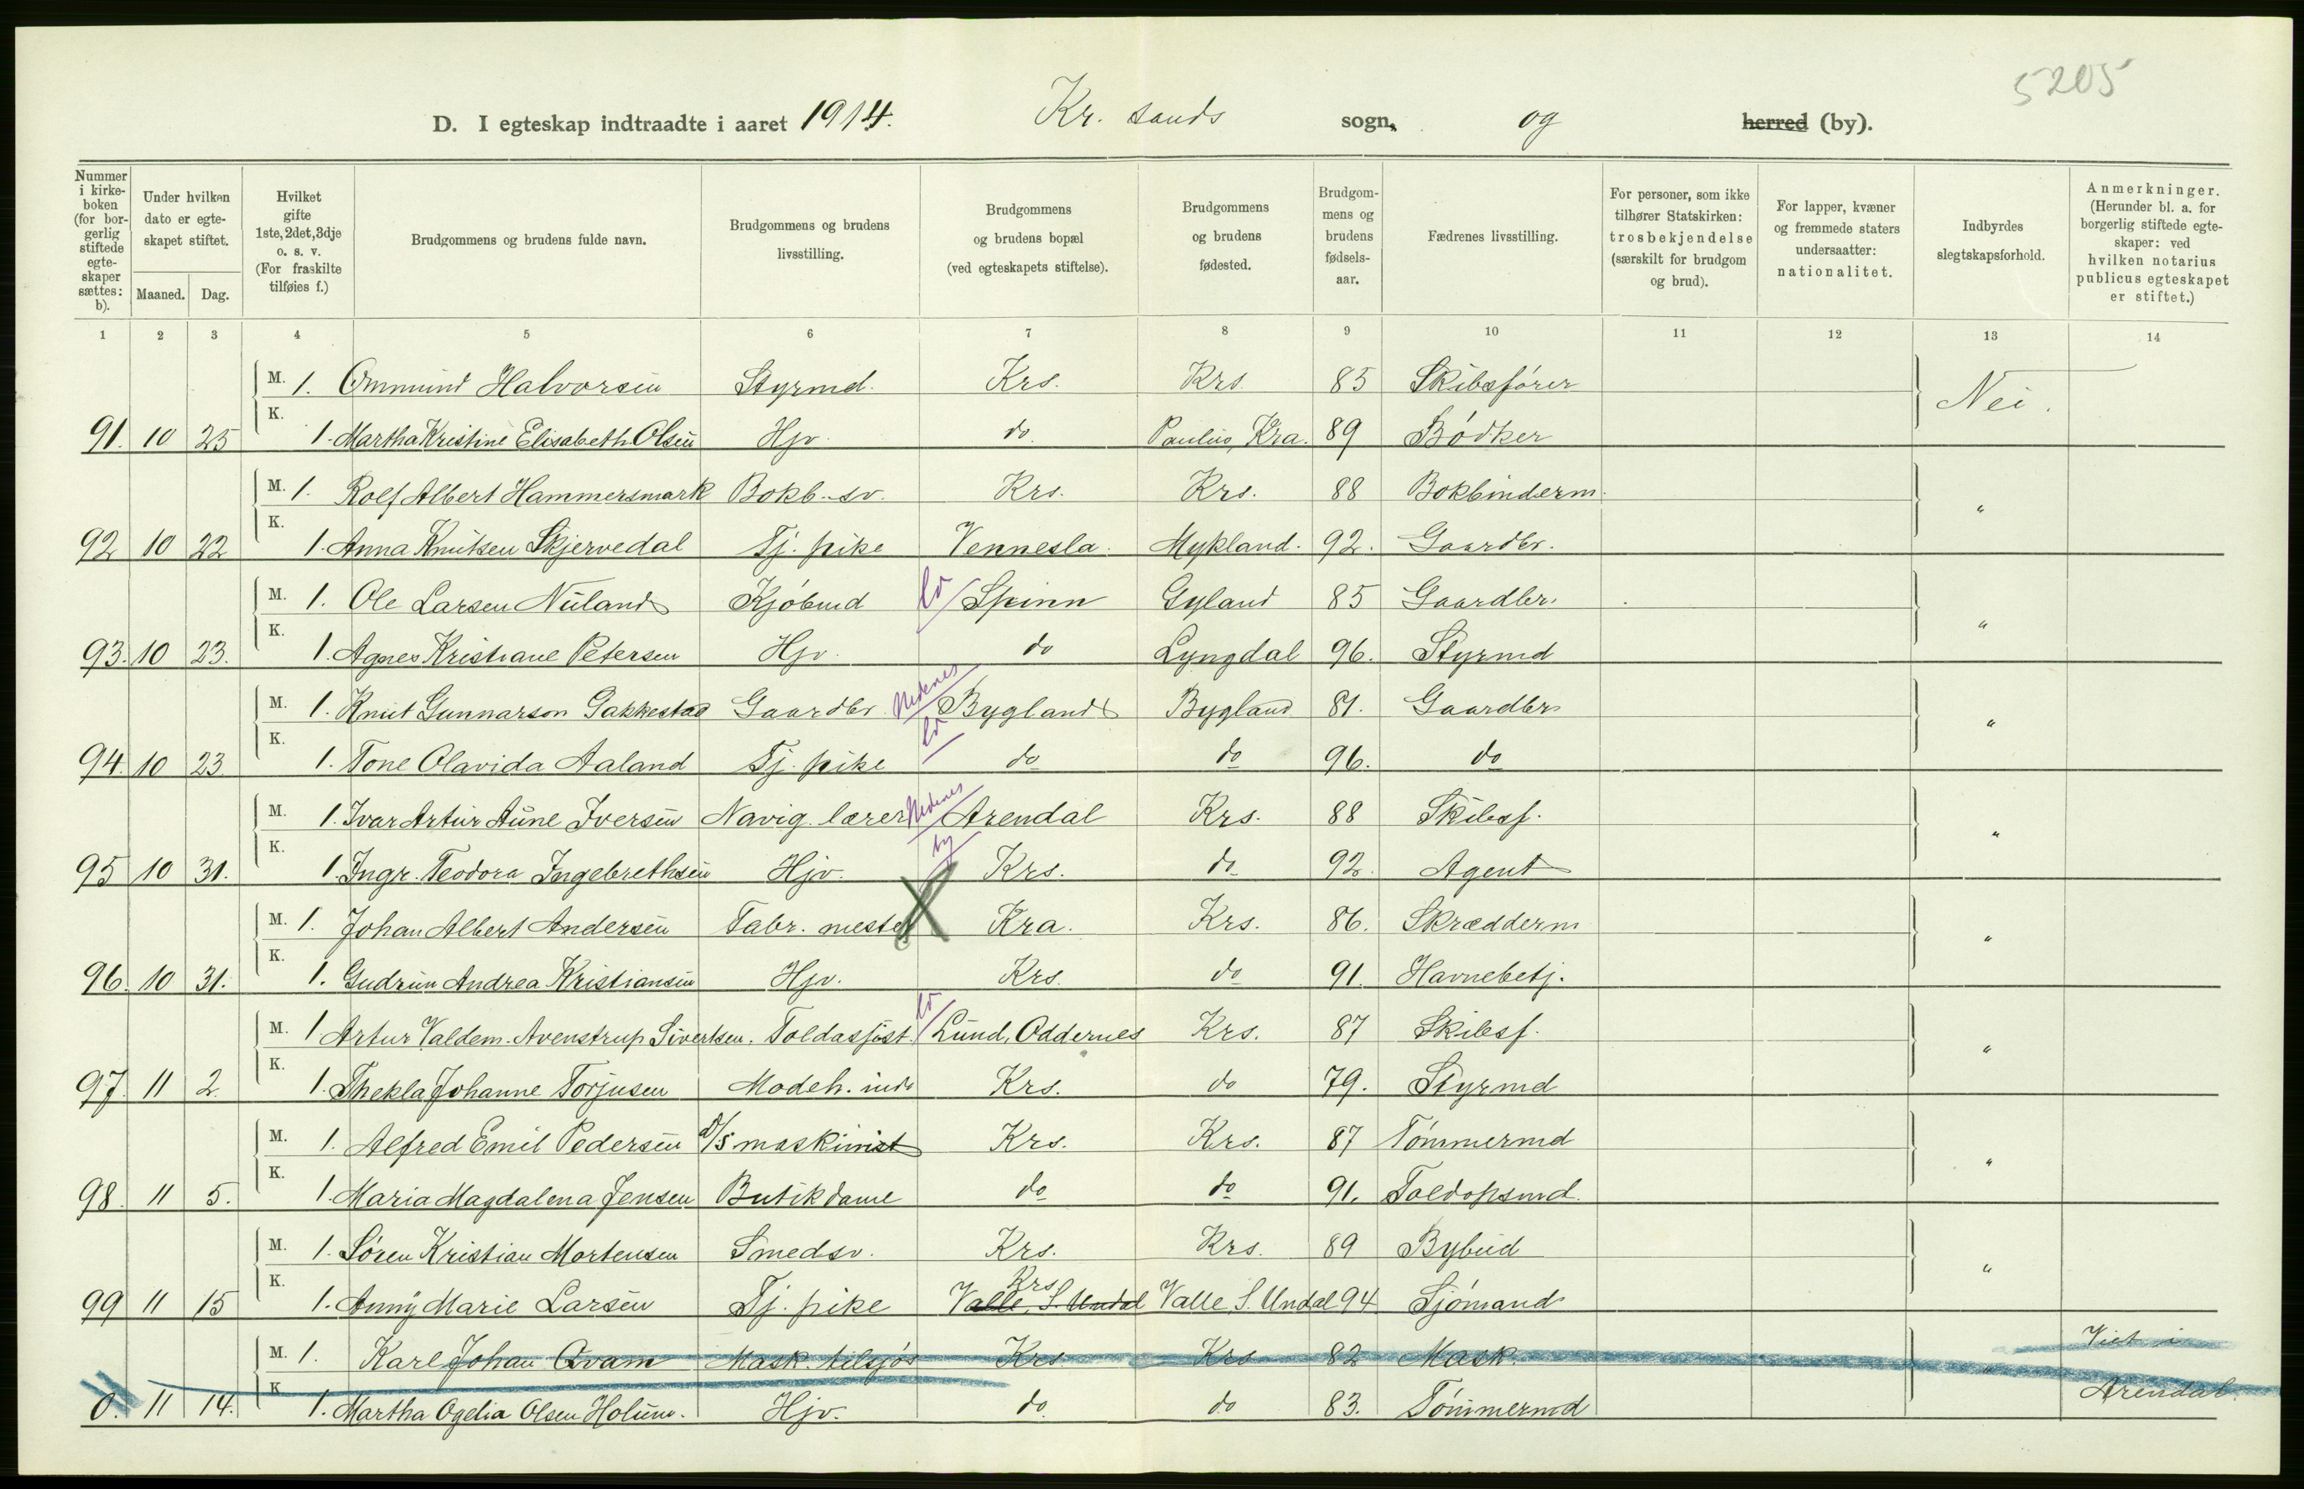 5205
D. I egteskap indtraadte i aaret 1914. Kr. sands sogn, og herred (by).
Nummer i kirkeboken (for borgerlig stiftede egteskaper sættes: b).
Under hvilken dato er egteskapet stiftet.
Maaned. Dag.
Hvilket gifte 1ste, 2det, 3dje o. s. v. (For fraskilte tilføies f.)
Brudgommens og brudens fulde navn.
Brudgommens og brudens livsstilling.
Brudgommens og brudens bopæl (ved egteskapets stiftelse).
Brudgommens og brudens fødested.
Brudgommens og brudens fødselsaar.
Fædrenes livsstilling.
For personer, som ikke tilhører Statskirken: trosbekjendelse (særskilt for brudgom og brud).
For lapper, kvæner og fremmede staters undersaatter: nationalitet.
Indbyrdes slegtskapsforhold.
Anmerkninger. (Herunder bl. a. for borgerlig stiftede egteskaper: ved hvilken notarius publicus egteskapet er stiftet.)
1 2 3 4 5 6 7 8 9 10 11 12 13 14
M. 1. Ommund Halvorsen Styrmd. Krs. Krs 85 Skibsfører Nei.
91. 10 25 K. 1. Martha Kristine Elisabeth Olsen Hjv. do. Paulus, Kra. 89 Bødker
M. 1. Rolf Albert Hammersmark Bokb. sv. Krs. Krs. 88 Bokbinderm. "
92 10 22 K. 1. Anna Knutsen Skjervedal Tj. pike Vennesla. Mykland. 92. Gaardbr.
M. 1. Ole Larsen Nuland Kjøbmd Ld Spinn Gyland 85 Gaardbr. "
93. 10 23. K. 1. Agnes Kristiane Petersen Hjv. do Lyngdal 96. Styrmd
M. 1. Knut Gunnarson Gakkestad Gaardbr. Nedenes Ld Bygland Bygland 81. Gaardbr "
94. 10 23 K. 1. Tone Olavida Aaland Tj. pike do do 96. do
M. 1. Ivar Artur Aune Iversen Navig. lærer Nedenes by Arendal Krs. 88 Skibsf. "
95 10 31. K. 1. Ingr. Teodora Ingebrethsen Hjv. Krs. do 92. Agent
M. 1. Johan Albert Andersen Fabr. mester Kra. Krs. 86. Skrædderm "
96. 10 31. K. 1. Gudrun Andrea Kristiansen Hjv. Krs. do 91. Havnebetj.
M. 1. Artur Valdem. Avenstrup Sivertsen. Toldasjist. Ld Lund, Oddernes Krs. 87 Skibsf. "
97. 11 2. K. 1. Thekla Johanne Torjusen Modeh. ind. Krs. do 79. Styrmd
M. 1. Alfred Emil Pedersen d/s maskinist Krs. Krs. 87 Tømmermd "
98. 11 5. K. 1. Maria Magdalena Jensen Butikdame do do 91. Toldopsmd.
M. 1. Søren Kristian Mortensen Smedsv. Krs. Krs. 89 Bybud "
Krs
99 11 15 K. 1. Anny Marie Larsen Tj. pike Valle, S. Undal Valle, S. Undal 94 Sjømand
M. 1. Karl Johan Qvam Mask. tilsjos Krs Krs 82 Mask. " Viet i
0. 11 14. K. 1. Martha Ogelia Olsen Holum. Hjv. do. do 83. Tømmermd Arendal.